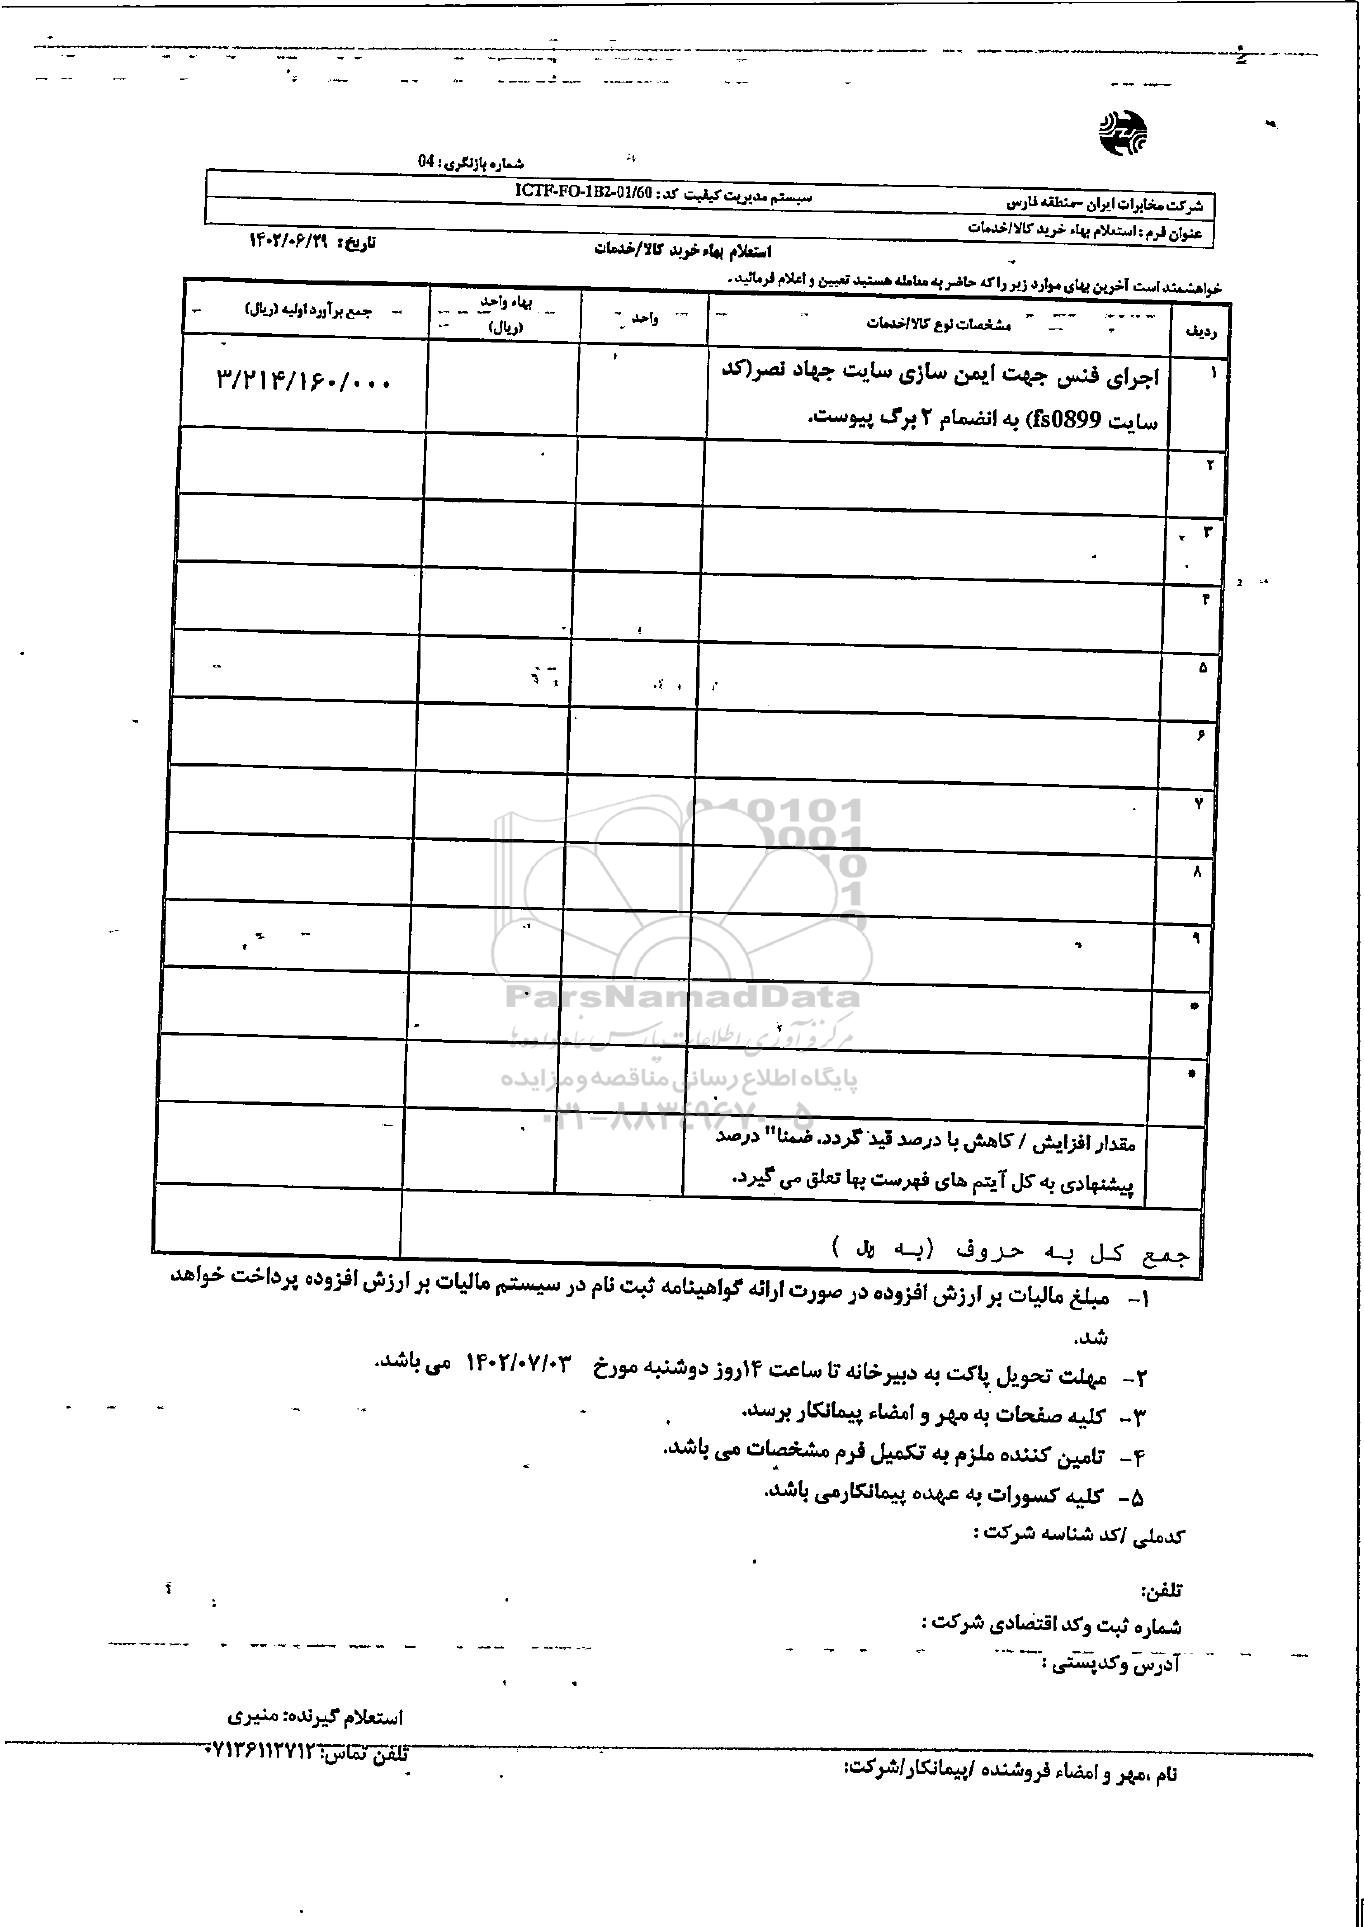 شماره بازنگری: 04
شرکت مخابرات ایران –منطقه فارس
سیستم مدیریت کیفیت کد: ICTF-FO-1B2-01/60
عنوان فرم: استعلام بهاء خرید کالا/خدمات
استعلام بهاء خرید کالا/خدمات
تاریخ: ۱۴۰۲/۰۶/۲۹
خواهشمند است آخرین بهای موارد زیر را که حاضر به معامله هستید تعیین و اعلام فرمائید.
ردیف
مشخصات نوع کالا/خدمات
واحد
بهاء واحد
(ریال)
جمع برآورد اولیه (ریال)
۱
اجرای فنس جهت ایمن سازی سایت جهاد نصر(کد
سایت fs0899) به انضمام ۲ برگ پیوست.
۳/۲۱۴/۱۶۰/۰۰۰
۲
۳
۴
۵
۶
۷
۸
۹
*
*
مقدار افزایش / کاهش با درصد قید گردد. ضمنا" درصد
پیشنهادی به کل آیتم های فهرست بها تعلق می گیرد.
جمع کل به حروف (به ریال )
۱- مبلغ مالیات بر ارزش افزوده در صورت ارائه گواهینامه ثبت نام در سیستم مالیات بر ارزش افزوده پرداخت خواهد
شد.
۲- مهلت تحویل پاکت به دبیرخانه تا ساعت ۱۴روز دوشنبه مورخ ۱۴۰۲/۰۷/۰۳ می باشد.
۳- کلیه صفحات به مهر و امضاء پیمانکار برسد.
۴- تامین کننده ملزم به تکمیل فرم مشخصات می باشد.
۵- کلیه کسورات به عهده پیمانکارمی باشد.
کدملی /کد شناسه شرکت :
تلفن:
شماره ثبت وکد اقتصادی شرکت :
آدرس وکدپستی :
استعلام گیرنده: منیری
تلفن تماس: ۰۷۱۳۶۱۱۲۷۱۲
نام ،مهر و امضاء فروشنده /پیمانکار/شرکت:
ParsNamadData
پایگاه اطلاع رسانی مناقصه و مزایده
۰۲۱-۸۸۳۴۹۶۷۰-۵